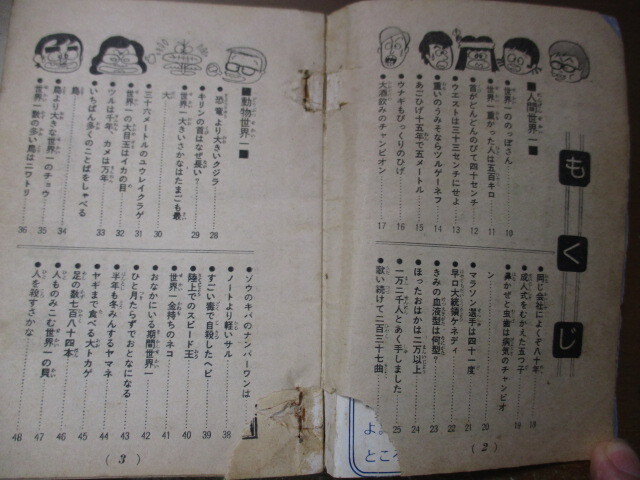 もくじ
■人間世界一■
●世界一ののっぽさん……10
●世界一重かった人は五百キロ……11
●首がどんどんのびて四十センチ……12
●ウエストは三十三センチにせよ……13
●重いのうみそならツルゲーネフ……14
●あごひげ十五年で五メートル……15
●ウナギもびっくりのひげ……16
●大酒飲みのチャンピオン……17
●同じ会社によくぞ八十年……18
●成人式をむかえた五つ子……19
●鼻かぜと虫歯は病気のチャンピオン……20
●マラソン選手は四十一度……21
●早口大統領ケネディ……22
●きみの血液型は何型?……23
●ほったおはかは二万以上……24
●一万二千人とあく手しました……25
●歌い続けて二百三十七曲
(2)
よ
ところ
■動物世界一■
●恐竜より大きいクジラ……28
●キリンの首はなぜ長い?……29
●世界一大きいさかなはたまごも最大……30
●三十六メートルのユウレイクラゲ……31
●世界一の大目玉はイカの目……32
●ツルは千年、カメは万年……33
●いちばん多くのことばをしゃべる鳥……34
●鳥より大きな世界一のチョウ……35
●世界一数の多い鳥はニワトリ……36
●ゾウのキバのナンバーワンは
●ノートより軽いサル……38
●すごい毒で自殺したヘビ……39
●陸上でのスピード王……40
●世界一金持ちのネコ……41
●おなかにいる期間世界一……42
●ひと月たらずでおとなになる……43
●半年も冬みんするヤマネ……44
●ヤギまで食べる大トカゲ……45
●足の数七百八十四本……46
●人ものみこむ世界一の貝……47
●人を殺すさかな……48
(3)